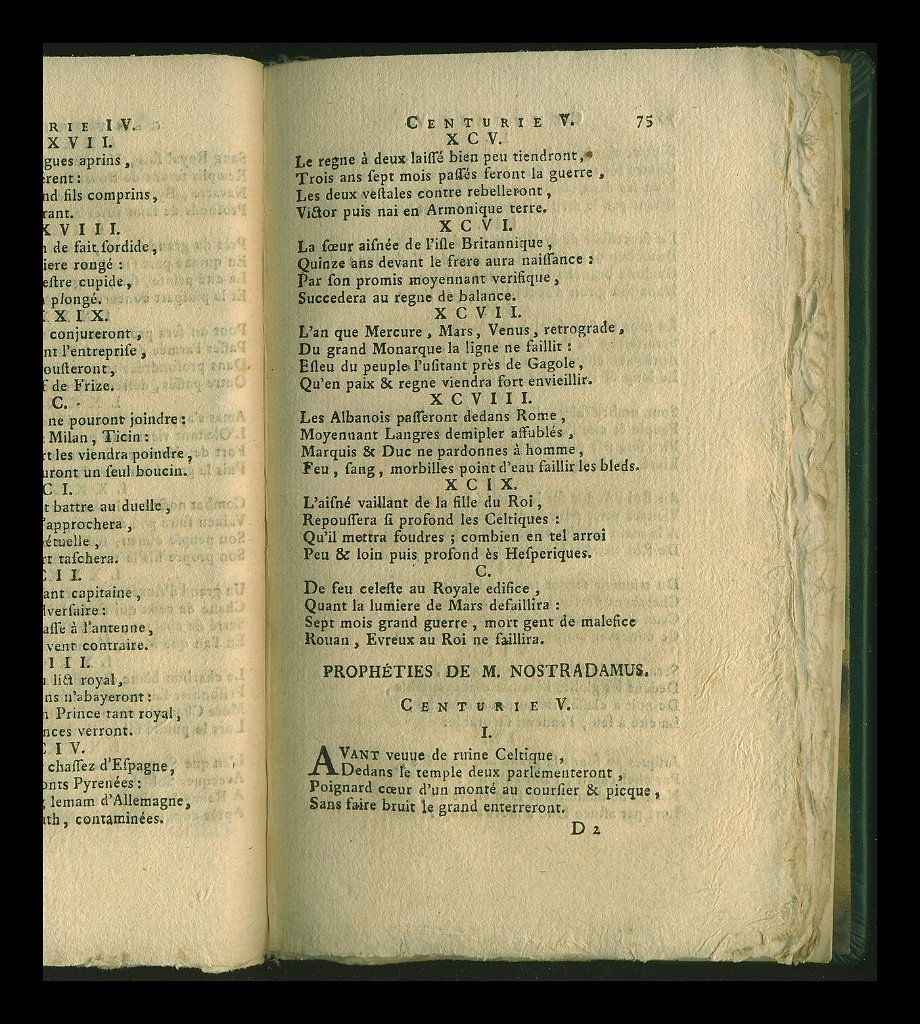 RIE IV.
XVII.
gues aprins,
erent:
nd fils comprins,
rant.
XVIII.
n de fait sordide,
iere rongé:
estre cupide,
plongé.
XIX.
conjureront,
nt l'entreprise,
ousteront,
f de Frize.
C.
ne pouront joindre:
Milan, Ticin:
rt les viendra poindre,
uront un seul boucin.
CI.
t battre au duelle,
'approchera,
étuelle,
rt taschera.
II.
ant capitaine,
dversaire:
asse à l'antenne,
vent contraire.
III.
lict royal,
ns n'abayeront:
n Prince tant royal,
nces verront.
IV.
chassez d'Espagne,
onts Pyrenées:
lemam d'Allemagne,
th, contaminées.
CENTURIE V. 75
XCV.
Le regne à deux laissé bien peu tiendront,
Trois ans sept mois passés feront la guerre,
Les deux vestales contre rebelleront,
Victor puis nai en Armonique terre.
XCVI.
La sœur aisnée de l'isle Britannique,
Quinze ans devant le frere aura naissance:
Par son promis moyennant verifique,
Succedera au regne de balance.
XCVII.
L'an que Mercure, Mars, Venus, retrograde,
Du grand Monarque la ligne ne faillit:
Esleu du peuple l'usitant près de Gagole,
Qu'en paix & regne viendra fort envieillir.
XCVIII.
Les Albanois passeront dedans Rome,
Moyennant Langres demipler affublés,
Marquis & Duc ne pardonnes à homme,
Feu, sang, morbilles point d'eau faillir les bleds.
XCIX.
L'aisné vaillant de la fille du Roi,
Repoussera si profond les Celtiques:
Qu'il mettra foudres; combien en tel arroi
Peu & loin puis profond ès Hesperiques.
C.
De feu celeste au Royale edifice,
Quant la lumiere de Mars defaillira:
Sept mois grand guerre, mort gent de malefice
Rouan, Evreux au Roi ne faillira.
PROPHÉTIES DE M. NOSTRADAMUS.
CENTURIE V.
I.
AVANT veuue de ruine Celtique,
Dedans le temple deux parlementeront,
Poignard cœur d'un monté au coursier & picque,
Sans faire bruit le grand enterreront.
D 2